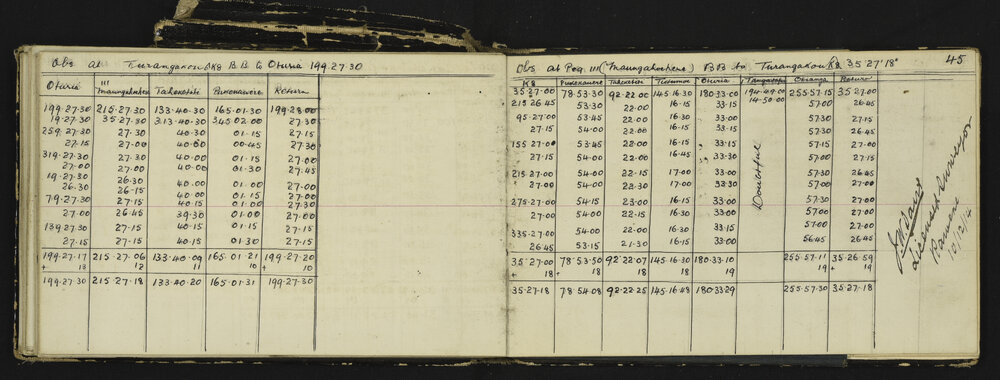 Obs at Turangakou RKS B B to Oturia 199.27.30
Oturia III Maungahuhene Tahekeke Pukenauere Return
199.27.30 215.27.30 133.40.30 165.01.30 199.28.00
19.27.30 35.27.30 313.40.30 345.02.00 27.30
259.27.30 27.30 40.30 01.15 27.30
27.15 27.00 40.00 00.45 27.30
319.27.30 27.30 40.00 01.15 27.00
27.00 27.00 40.00 01.30 27.45
19.27.30 26.30
26.30 26.30 40.00 01.00 27.00
26.15 40.00 01.15 27.00
79.27.30 27.15 40.15 01.00 27.30
27.00 26.45 39.30 01.00 27.00
139.27.30 27.15 40.15 01.15 27.15
27.15 27.15 40.15 01.30 27.15
199.27.17 215.27.06 133.40.09 165.01.21 199.27.20
+ 13 12 11 10 + 10
199.27.30 215.27.18 133.40.20 165.01.31 199.27.30
45
Obs at Peg III (Maungahuhene) BB to Turangakou RKS 35.27.18"
RKS Pukenauere Tahekeke Oturia Return
35.27.00 78.53.30 92.22.00 145.16.30 180.33.00 194.49.00 255.57.15 35.27.00
215.26.45 53.30 22.00 16.15 33.15 14.50.00 57.00 26.45
95.27.00 53.45 22.00 16.30 33.00 57.30 27.15
27.15 54.00 22.00 16.15 33.15 57.30 26.45
155.27.00 53.45 22.00 16.30 33.15 57.15 27.00
27.15 54.00 22.00 16.45 33.30 57.00 27.15
215.27.00 54.00 22.15 17.00 33.00 57.30 26.45
27.00 54.00 22.30 17.00 33.30 57.00 27.00
275.27.00 54.15 23.00 16.15 33.00 57.30 27.00
27.00 54.00 22.15 16.30 33.00 57.00 27.00
335.27.00 54.00 22.00 16.30 33.15 57.00 27.00
26.45 53.15 21.30 16.15 33.00 56.45 26.45
35.27.00 78.53.50 92.22.07 145.16.30 180.33.10 255.57.11 35.26.59
+ 18 + 18 18 18 19 19 + 19
35.27.18 78.54.08 92.22.25 145.16.48 180.33.29 255.57.30 35.27.18
Doubtful
Licensed Surveyor
Rawene
10/12/14